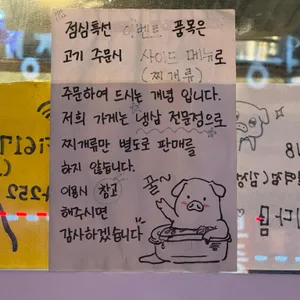 점심특선 이벤트 품목은
고기 주문시 사이드 메뉴로
(찌개류)
주문하여 드시는 개념 입니다.
저희 가게는 냉삼 전문점으로
찌개류만 별도로 판매를
하지 않습니다.
이용시 참고
해주시면
감사하겠습니다
꿀~